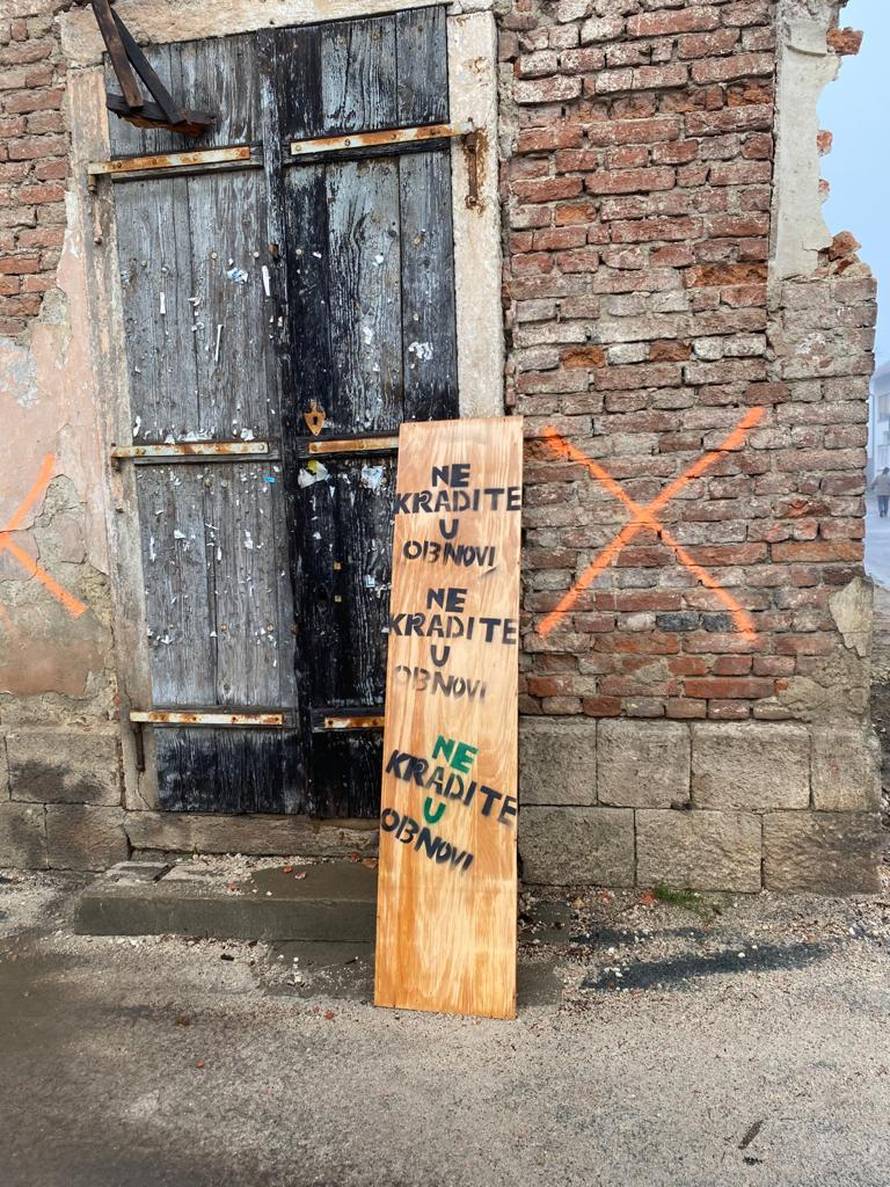 NE
KRADITE
U
OBNOVI
NE
KRADITE
U
OBNOVI
NE
KRADITE
U
OBNOVI